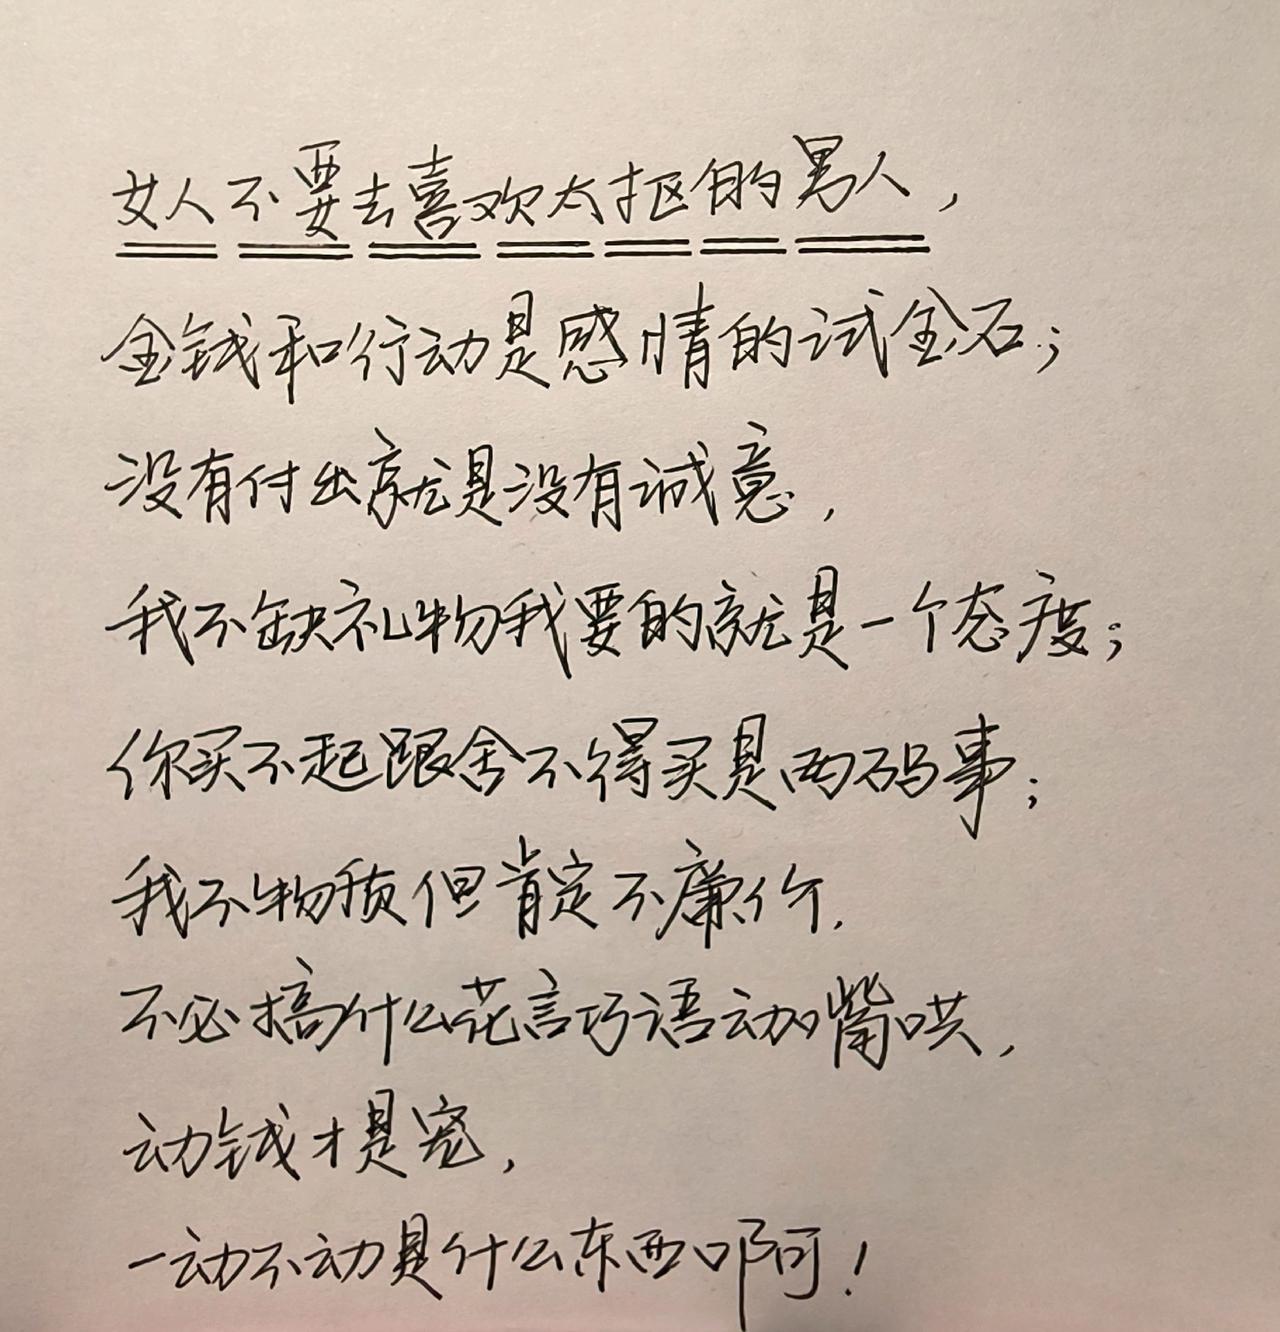 女人不要去喜欢太抠的男人，
金钱和行动是感情的试金石；
没有付出就是没有诚意，
我不缺礼物我要的就是一个态度；
你买不起跟舍不得买是两码事；
我不物质但肯定不廉价.
不必搞什么花言巧语动嘴哄，
动钱才是宠，
一动不动是什么东西啊！